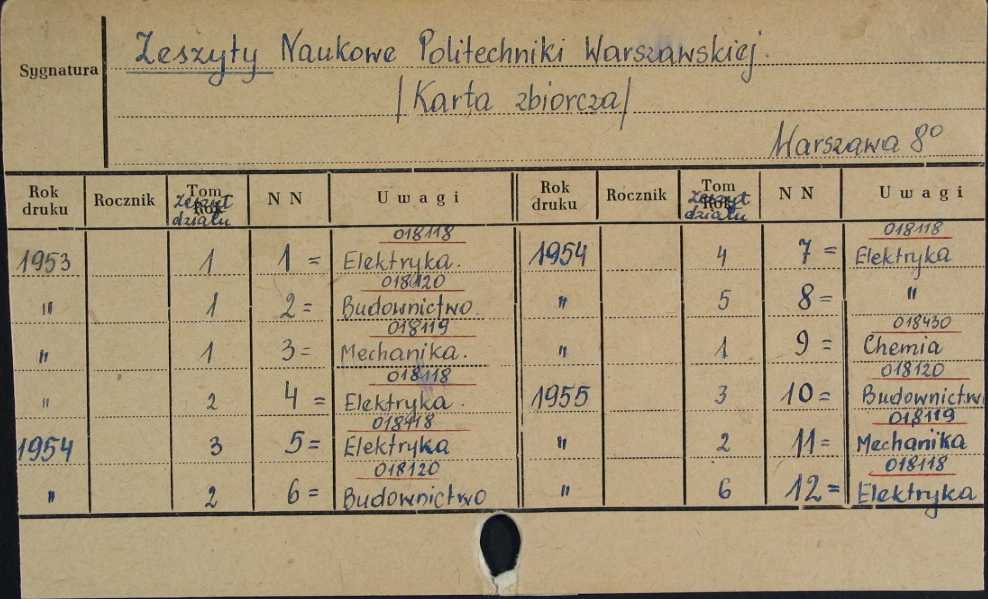 Sygnatura
Zeszyty Naukowe Politechniki Warszawskiej.
/Karta zbiorcza/
Warszawa 8°
Rok druku Rocznik Tom Rok zeszyt działu N N Uwagi
1953 1 1 = 018118 Elektryka.
" 1 2 = 018120 Budownictwo.
" 1 3 = 018119 Mechanika.
" 2 4 = 018118 Elektryka.
1954 3 5 = 018418 Elektryka
" 2 6 = 018120 Budownictwo
Rok druku Rocznik Tom Rok zeszyt działu N N Uwagi
1954 4 7 = 018118 Elektryka
" 5 8 = "
" 1 9 = 018430 Chemia
1955 3 10 = 018120 Budownictwo
" 2 11 = 018119 Mechanika
" 6 12 = 018118 Elektryka